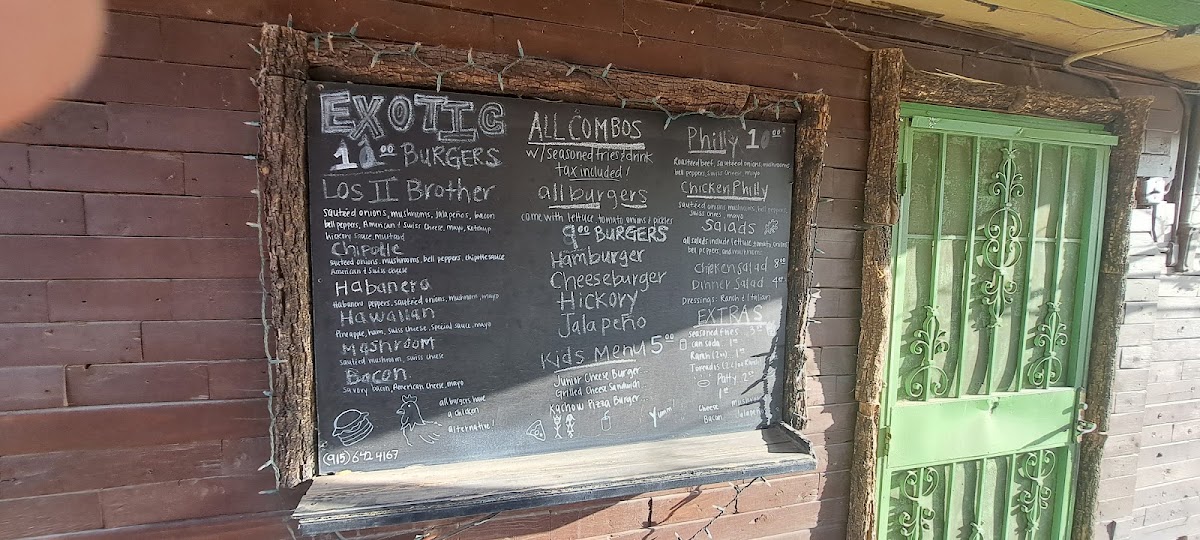 EXOTIC
10.00 BURGERS
Los II Brother
sautéed onions, mushrooms, jalapeños, bacon
bell peppers, American & Swiss cheese, mayo, ketchup
hickory sauce, mustard
Chipotle
sauteed onions, mushrooms, bell peppers, chipotle sauce
American & Swiss cheese
Habanero
Habanero peppers, sautéed onions, mushroom, mayo
Hawaiian
Pineapple, ham, Swiss cheese, special sauce, mayo
Mushroom
sautéed mushroom, Swiss cheese
Bacon
savory bacon, American cheese, mayo
all burgers have
a chicken
alternative!
(915) 642 4167
ALL COMBOS
w/ seasoned fries & drink
tax included!
all burgers
come with lettuce, tomato, onions & pickles
9.00 BURGERS
Hamburger
Cheeseburger
Hickory
Jalapeño
Kids Menu 5.00
Junior Cheese Burger
Grilled Cheese Sandwich
Kachow Pizza Burger
Yumm!
Philly 10.00
Roasted beef, sautéed onions, mushrooms
bell peppers, Swiss cheese, mayo
Chicken Philly
sautéed onions, mushrooms, bell peppers,
Swiss cheese, mayo
Salads
all salads include lettuce, tomato,
bell peppers, and mushrooms
Chicken Salad 8.00
Dinner Salad 4.00
Dressings: Ranch & Italian
EXTRAS
seasoned fries
can soda 1.00
Ranch (2oz) 1.00
Toreados
Patty 2.00
1.00
Cheese
Bacon Jalapeño